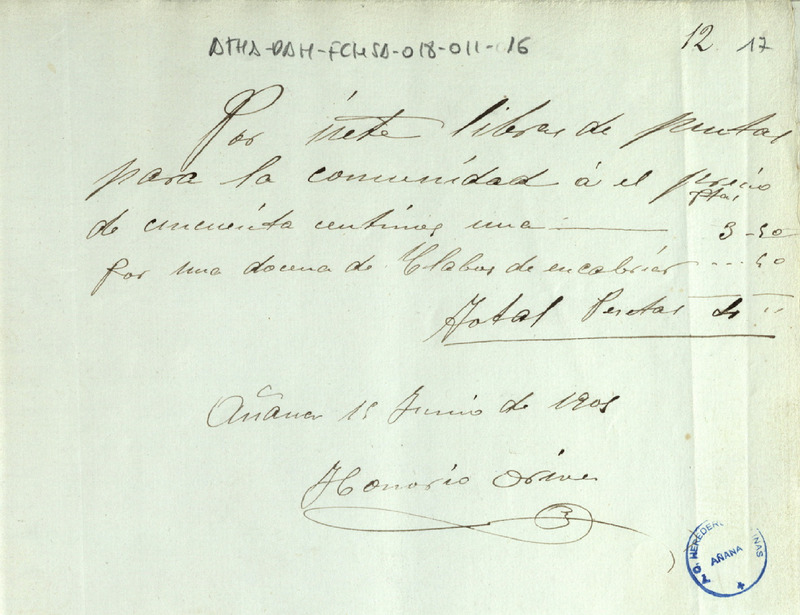 ATHA-DAH-FCMSA-018-011-16
12 17
Por siete libras de puntas
para la comunidad á el precio
ptas
de cincuenta centimos una 3-50
por una docena de Clabos de encabriar 50
Total Pesetas 4 "
Añana 15 Junio de 1905
Honorio Orive
AÑANA